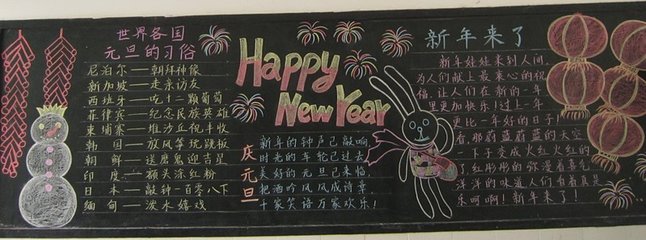 世界各国
元旦的习俗
尼泊尔——朝拜神像
新加坡——走亲访友
西班牙——吃十二颗葡萄
菲律宾——纪念民族英雄
柬埔寨——堆沙丘祝丰收
韩国——放风筝玩跷板
朝鲜——送魔鬼迎吉星
印度——额头涂红粉
日本——敲钟一百零八下
缅甸——泼水嬉戏
Happy
New Year
庆元旦
新年的钟声已敲响
时光的车轮已过去
美好的元旦已来临
把酒吟风风成诗章
千家笑语万家欢乐!
新年来了
新年娃娃来到人间,
为人们献上最衷心的祝
福,让人们在新的一年
里更加快乐!过上一年
更比一年好的日子!
看,那蔚蓝蔚蓝的天空
一下子变成火红火红的
了,红彤彤的弥漫着喜气
洋洋的味道人们看着真是
乐呵啊!新年来了!